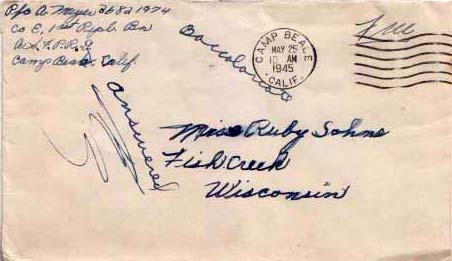 Pfc A. Meyer 3682 1974
Co E, 1st Repl. Bn
Camp Beale, Calif.
CAMP BEALE
MAY 25
10 AM
1945
CALIF.
Free
answered
Miss Ruby Sohns
Fish Creek
Wisconsin